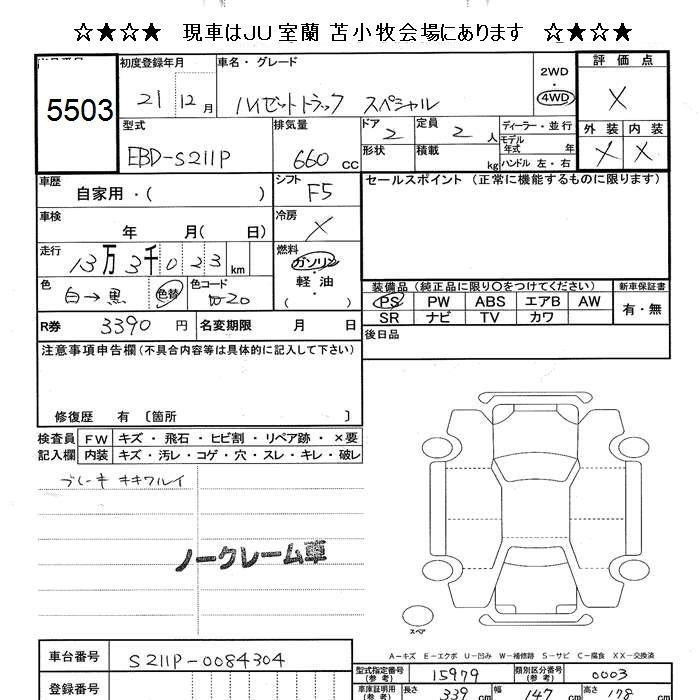 ☆★☆★ 現車はJU室蘭 苫小牧会場にあります ☆★☆★
5503
初度登録年月 車名・グレード 評価点
21 12月 ハイゼットトラック スペシャル 2WD ・ 4WD X
型式 排気量 ドア 2 定員 2 人 ディーラー・並行 外装 内装
EBD-S211P 660 cc 形状 積載 kg モデル年式 年 ハンドル 左・右 X X
車歴 シフト セールスポイント (正常に機能するものに限ります)
自家用・( ) F5
車検 冷房
年 月( 日) X
走行 燃料
13万3千023 km ガソリン・軽油・( )
色 色コード 装備品 (純正品に限り○をつけてください) 新車保証書
白→黒 色替 W-20 PS PW ABS エアB AW 有・無
SR ナビ TV カワ
R券 3390 円 名変期限 月 日 後日品
注意事項申告欄 (不具合内容等は具体的に記入して下さい)
修復歴 有 〔箇所 〕
検査員 FW キズ・飛石・ヒビ割・リペア跡・×要
記入欄 内装 キズ・汚レ・コゲ・穴・スレ・キレ・破レ
ブレーキ キキワルイ
ノークレーム車
スペア
A-キズ E-エクボ U-凹み W-補修跡 S-サビ C-腐食 XX-交換済
車台番号 S211P-0084304
型式指定番号 (参考) 15979 類別区分番号 (参考) 0003
登録番号 車庫証明用 (参考) 長さ 339 cm 幅 147 cm 高さ 178 cm